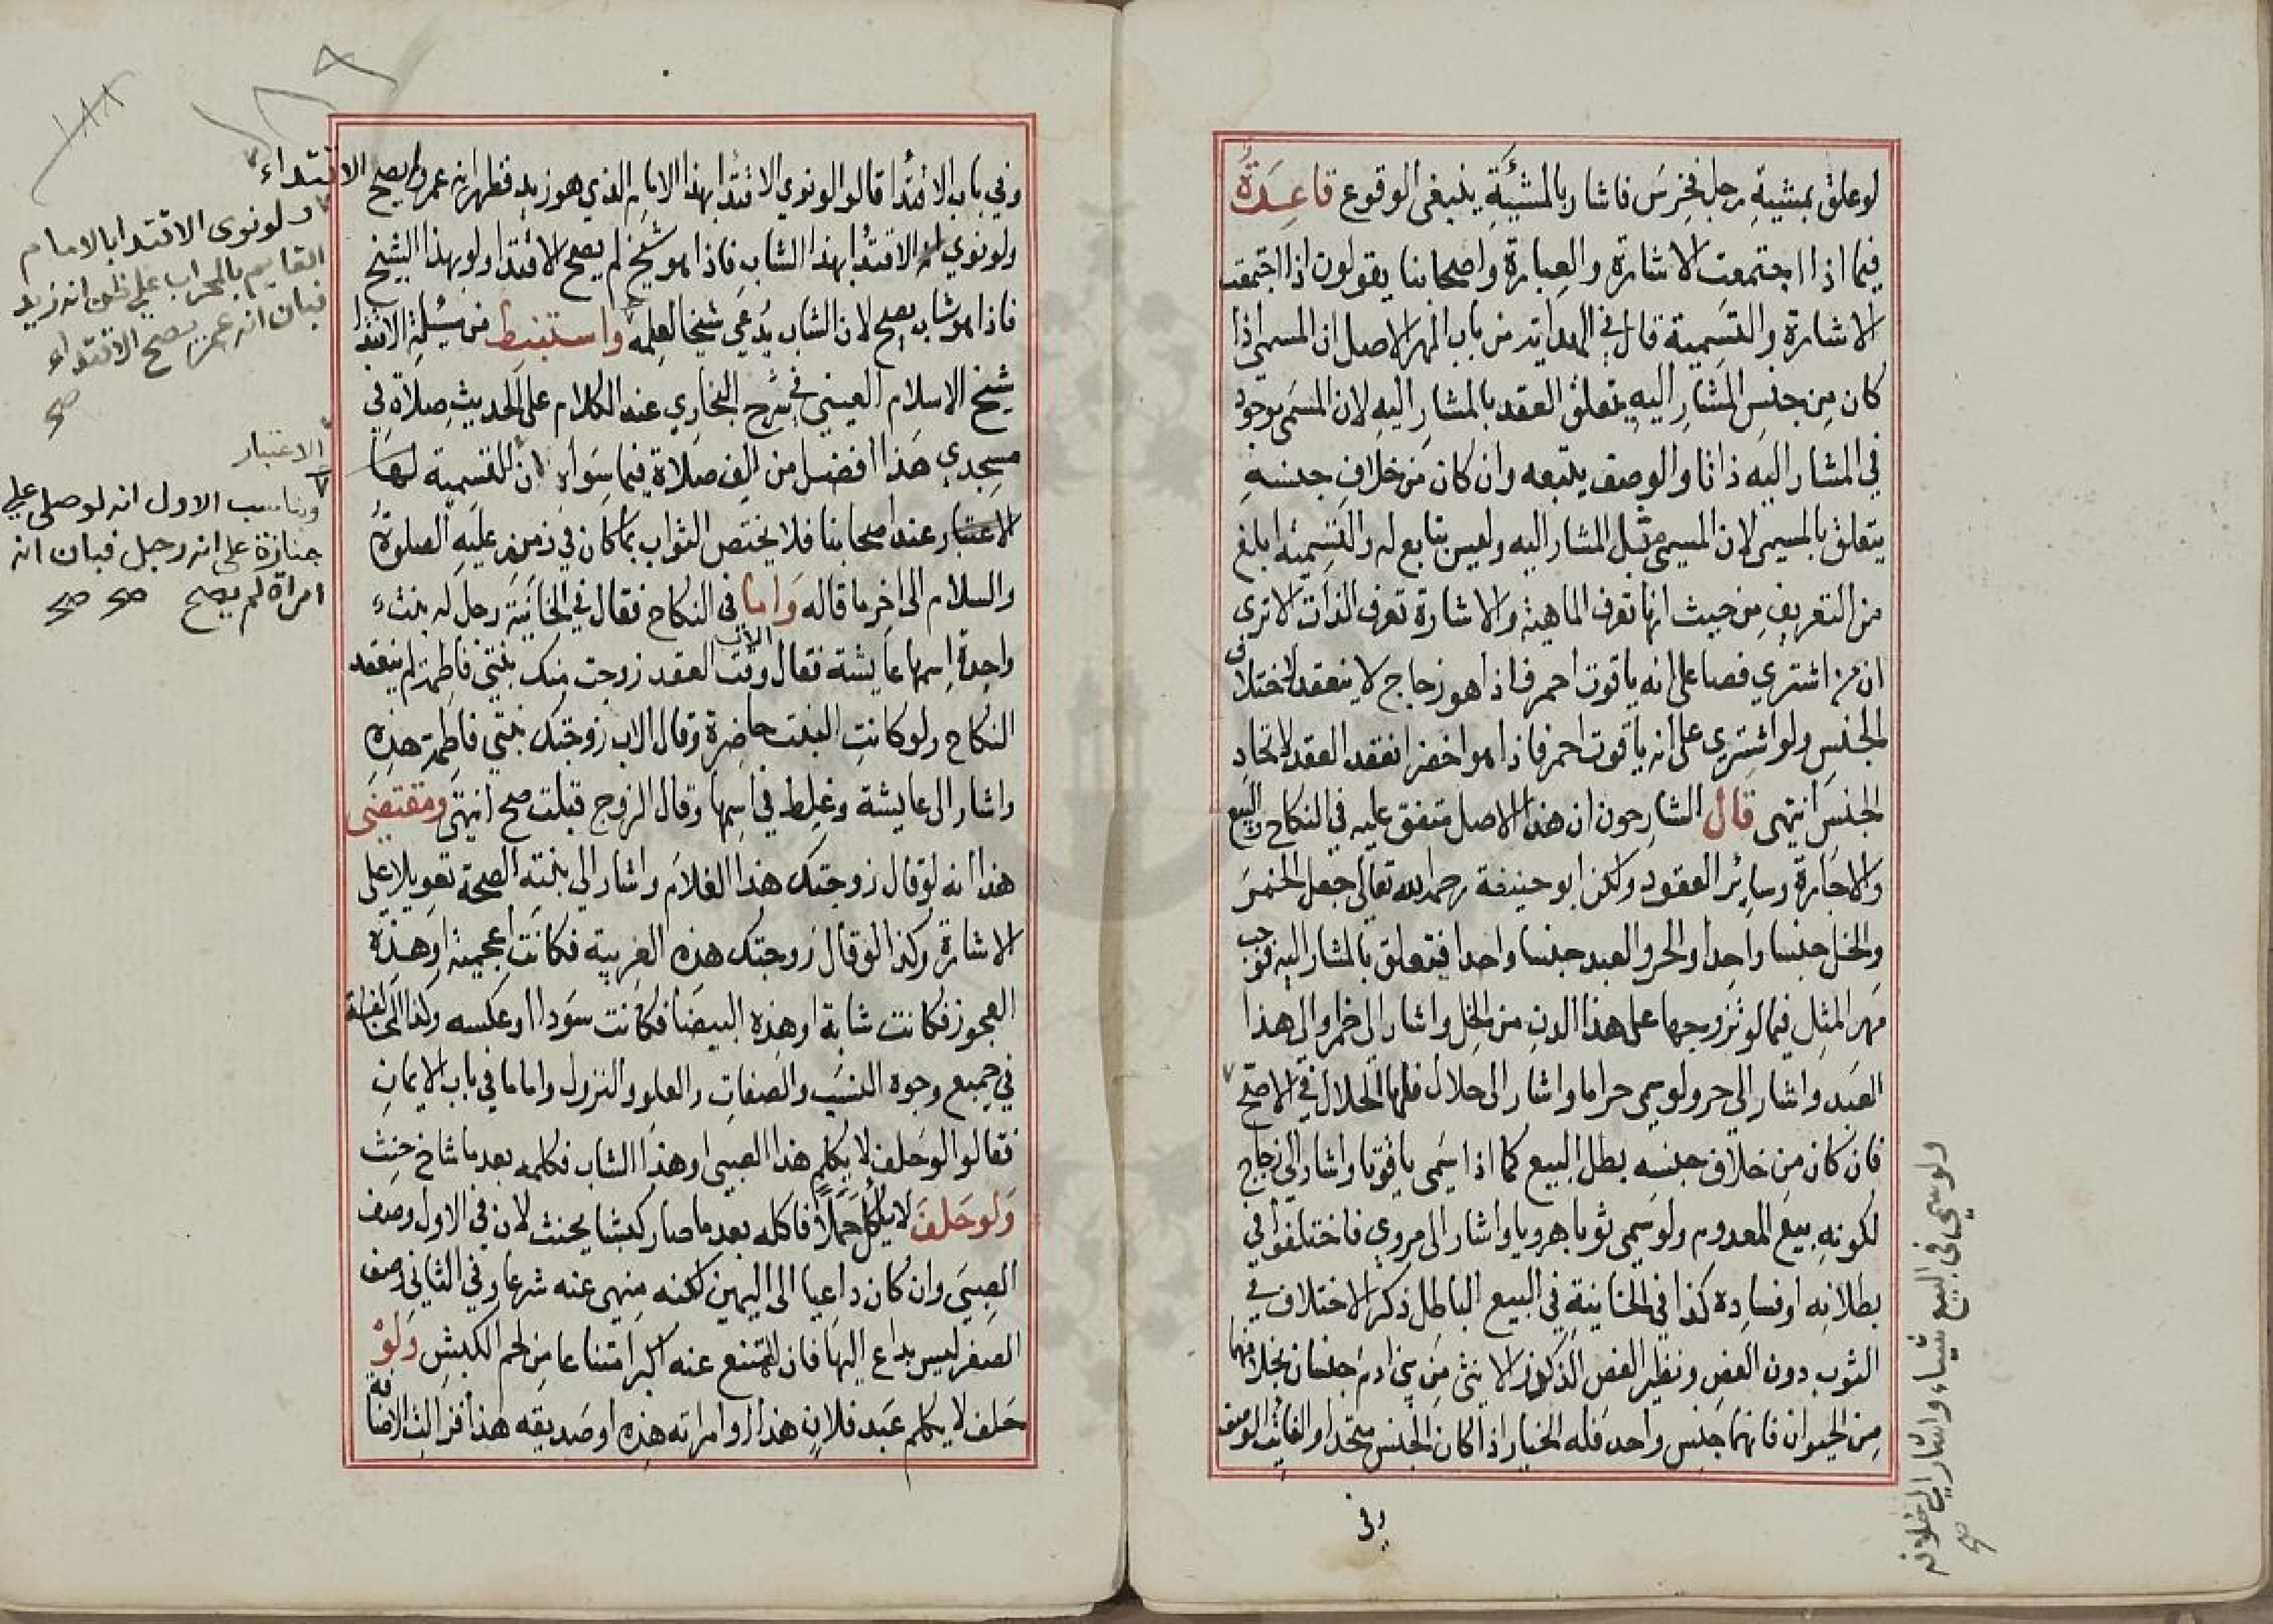 لو علق بمشيئة رجل فخرس فاشار بالمشيئة ينبغي الوقوع قاعدة
فيما اذا اجتمعت الاشارة والعبارة واصحابنا يقولون اذا اجتمعت
الاشارة والتسمية قال في الهداية من باب المهر الاصل ان المسمى اذا
كان من جنس المشار اليه يتعلق العقد بالمشار اليه لان المسمى موجود
في المشار اليه ذاتا والوصف يتبعه وان كان من خلاف جنسه
يتعلق بالمسمى لان المسمى مثل المشار اليه وليس بتابع له والتسمية ابلغ
من التعريف من حيث انها تعرف الماهية والاشارة تعرف الذات الا ترى
ان من اشتري فصا على انه ياقوت احمر فاذا هو زجاج لا ينعقد لاختلاف
الجنس ولو اشتري على انه ياقوت احمر فاذا هو اخضر انعقد العقد لاتحاد
الجنس انتهى قال الشارحون ان هذا الاصل متفق عليه في النكاح والبيع
والاجارة وسائر العقود ولكن ابو حنيفة رحمه الله تعالى جعل الخمر
والخل جنسا واحدا والحر والعبد جنسا واحدا فيتعلق بالمشار اليه فوجب
مهر المثل فيما لو تزوجها على هذا الدن من الخل واشار الى خمر والى هذا
العبد واشار الي حر ولو سمى حراما واشار الى حلال فلها الحلال في الاصح
فان كان من خلاف جنسه بطل البيع كما اذا سمى ياقوتا واشار الي زجاج
لكونه بيع المعدوم ولو سمى ثوبا هرويا واشار الى مروي فاختلفوا في
بطلانه او فساده كذا في الخانية في البيع الباطل ذكر الاختلاف في
الثوب دون الفص ونظير الفص الذكر والانثى من بني ادم جنسان بخلافهما
من الحيوان فانهما جنس واحد فله الخيار اذا كان الجنس متحدا والفائت الوصف
وفي
ولو سمى في البيع شيئاء واشار الي خلافه
صح
وفي باب الاقتدا قالوا لو نوي الاقتدا بهذا الامام الذي هو زيد فظهر انه عمرو لم يصح الاقتداء
ولو نوي الاقتدا بهذا الشاب فاذا هو شيخ لم يصح الاقتدا ولو بهذا الشيخ
فاذا هو شاب يصح لان الشاب يدعي شيخا لعلمه واستنبط من مسئلة الاقتدا
شيخ الاسلام العيني في شرح البخاري عند الكلام على الحديث صلاة في
مسجدي هذا افضل من الف صلاة فيما سواه ان للتسمية لها
الاعتبار عند اصحابنا فلا يختص الثواب بما كان في زمنه عليه الصلوة
والسلام الى اخر ما قاله واما في النكاح فقال في الخانية رجل له بنت
واحدة اسمها عايشة فقال الاب وقت العقد زوجت منك بنتي فاطمة لم ينعقد
النكاح ولو كانت البنت حاضرة وقال الاب زوجتك بنتي فاطمة هذه
واشار الى عايشة وغلط في اسمها وقال الزوج قبلت صح انتهى ومقتضى
هذا انه لو قال زوجتك هذا الغلام واشار الي بنته الصحة تعويلا على
الاشارة وكذا لو قال زوجتك هذه العربية فكانت اعجمية او هذه
العجوز فكانت شابة او هذه البيضا فكانت سودا او عكسه وكذا المخالفة
في جميع وجوه النسب والصفات والعلو والنزول واما ما في باب الايمان
فقالوا لو حلف لا يكلم هذا الصبى او هذا الشاب فكلمه بعد ما شاخ حنث
ولو حلف لا ياكل حملا فاكله بعد ما صار كبشا يحنث لان في الاول وصف
الصبى وان كان داعيا الى اليمين لكنه منهى عنه شرعا وفي الثاني وصف
الصغر ليس بداع اليها فان الممتنع عنه اكبر امتناعا من لحم الكبش ولو
حلف لا يكلم عبد فلان هذا او امراته هذه او صديقه هذا فزالت الاضافة
١٨٩
١٨٨
ولو نوى الاقتدا بالامام
القايم بالمحراب علي ظن انه زيد
فبان انه عمر يصح الاقتداء
صح
الاعتبار
ويناسب الاول انه لو صلى على
جنازة على انه رجل فبان انه
امراة لم يصح صح صح